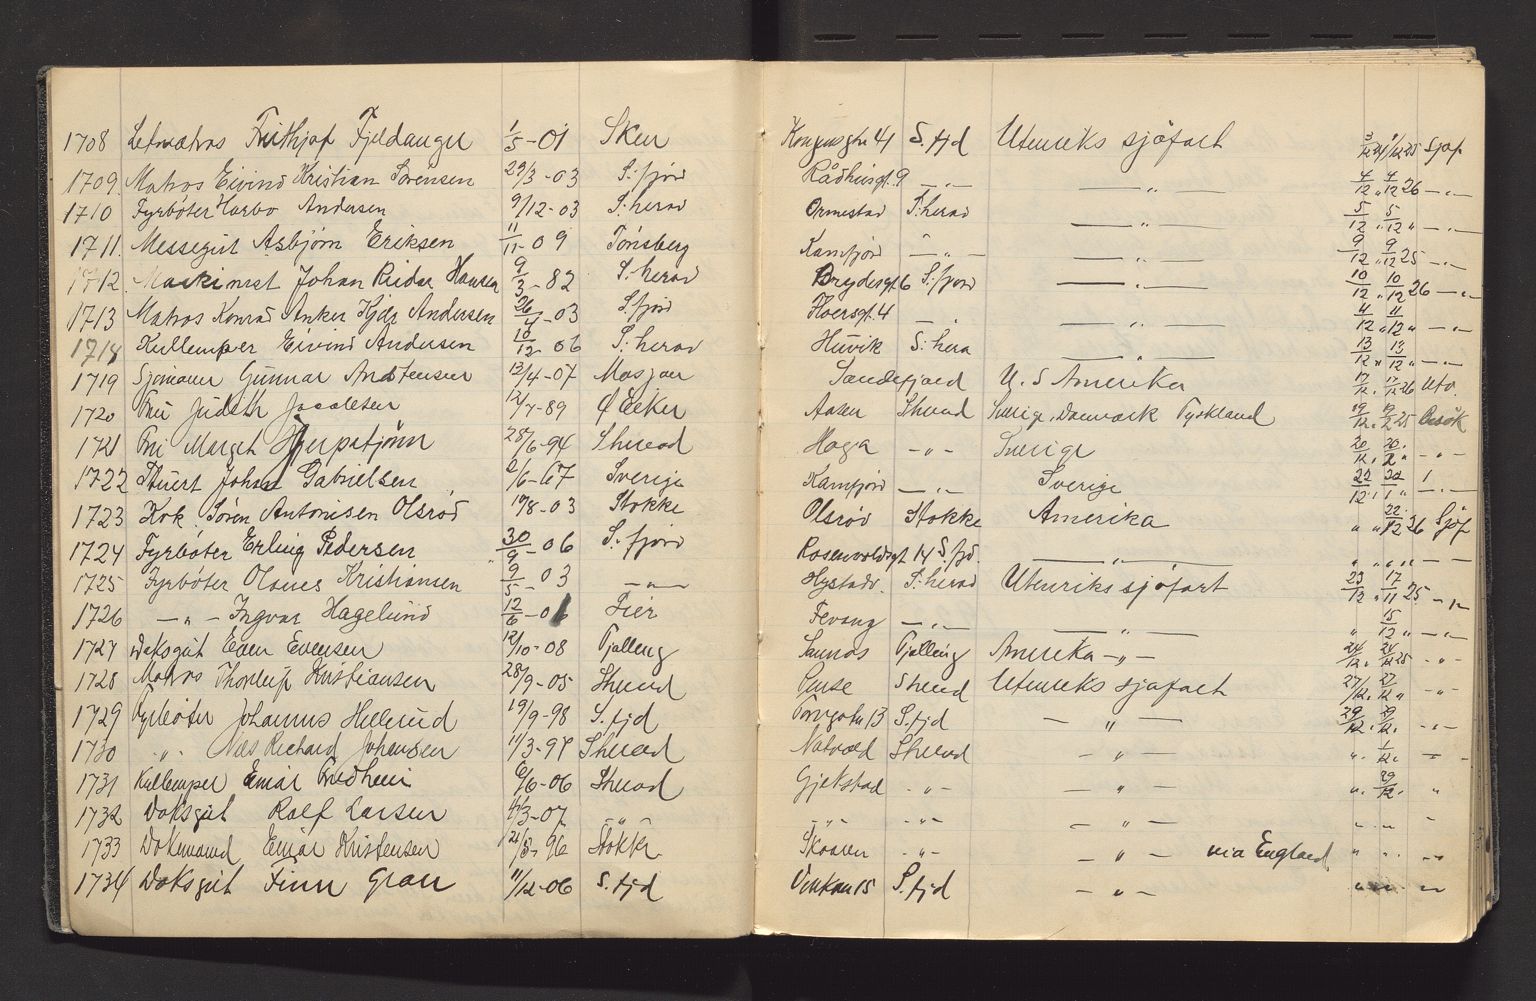 1708 Letmatros Frithjof Fjeldanger 1/5-01 Sken Kongensgtn 41 S. fjd Utenriks sjöfart 3/12 24 1/12 25 Sjøf
1709 Matros Eivind Kristian Sörensen 29/3-03 S. fjord Rådhusgt. 9 —„— —„— 4/12 „ 4/12 26 —„—
1710 Fyrböter Harbo Andersen 9/12-03 S. herad Ormestad S. herad —„— 5/12 „ 5/12 „ —„—
1711 Messegut Asbjörn Eriksen 11/11-09 Tönsberg Kamfjörd —„— —„— 9/12 „ 9/12 25 —„—
1712 Maskinist Johan Reidar Hansen 9/3-82 S. herad Brydesgt 6 S. fjord —„— 10/12 „ 10/12 26 —„—
1713 Matros Konrad Anker Hjide Andersen 26/4-03 S. fjörd gt. 4 —„— —„— 4/12 „ 11/12 „ —„—
1718 Kullemper Eivind Andersen 10/12-06 S. herad Huvik S. hera —„— 13/12 „ 13/12 „ —„—
1719 Sjömann Gunnar 13/4-07 Mosjøen Sandefjord U. S Amerika 17/12 „ 17/12 26 Utv.
1720 Fru Judith Jacobsen -89 Ø Eeker Aasen Sherad Sverige, Danmark Tyskland 19/12 „ 19/2 25 Besök
1721 Fru Margit 28/6-94 Sherad Haga —„— Sverige 20/12 „ 20/2 „ —„—
1722 Stuert Johan Gabrielsen 2/6-67 Sverige Kamfjörd —„— Sverige 22/12 „ 22/1 „ —„—
1723 Kok Sören Antonisen Olsröd 18-03 Stokke Olsröd Stokke Amerika „ „ 22/12 26 Sjöf
1724 Fyrböter Erling Pedersen 30/9-06 S. fjörd Rosenvoldsgt 14 S fjd. —„— „ „ „ „ — —
1725 Fyrböter Kristiansen 9/5-03 —„— Nystadv. S. herad Utenriks sjöfart 23/12 „ 17/11 25 —„—
1726 —„— Ingvar Hagelund 12/6-06 Eier Fevang —„— —„— „ 15/12 „ —„—
1727 Daksgut Even Evensen 12/10-08 Tjölling Saunes Tjølling Amerika —„— 24/12 „ 24/12 25 -„-
1728 Matros Thorleif Kristiansen 28/9-05 Sherad Sherad Utenriks sjøfart 27/12 „ 27/12 „ -„-
1729 Fyrbøter Johannes Hillerud 19/9-98 S. fjd 13 S. fjd —„— 29/12 „ 29/12 „ -„-
1730 „ Nils Richard Johansen 11/3-98 Sherad Natvald Sherad —„— „ 1/12 „ —
1731 Kullemper Einar 6/6-06 Sherad Gjekstad -„- —„— „ 29/12 „ „
1732 Daksgut Rolf Larsen /3-07 -„- -„- -„- —„— „ „ -
1733 Dekmand Einar Kristensen 21/8-96 Stokke Skoaren -„- —„— via England „ „ -„-
1734 Daksgut Finn Gran 11/12-06 S. fjd 15 S. fjd —„— „ „ -„-